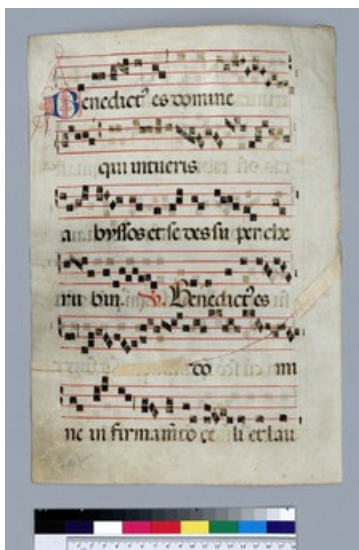 Benedict⁹ es domine
qui intueris
a byssos et se des su per che
ru bin. ℣. Benedict⁹ es
do mi
ne in firmam̄to ce li et lau